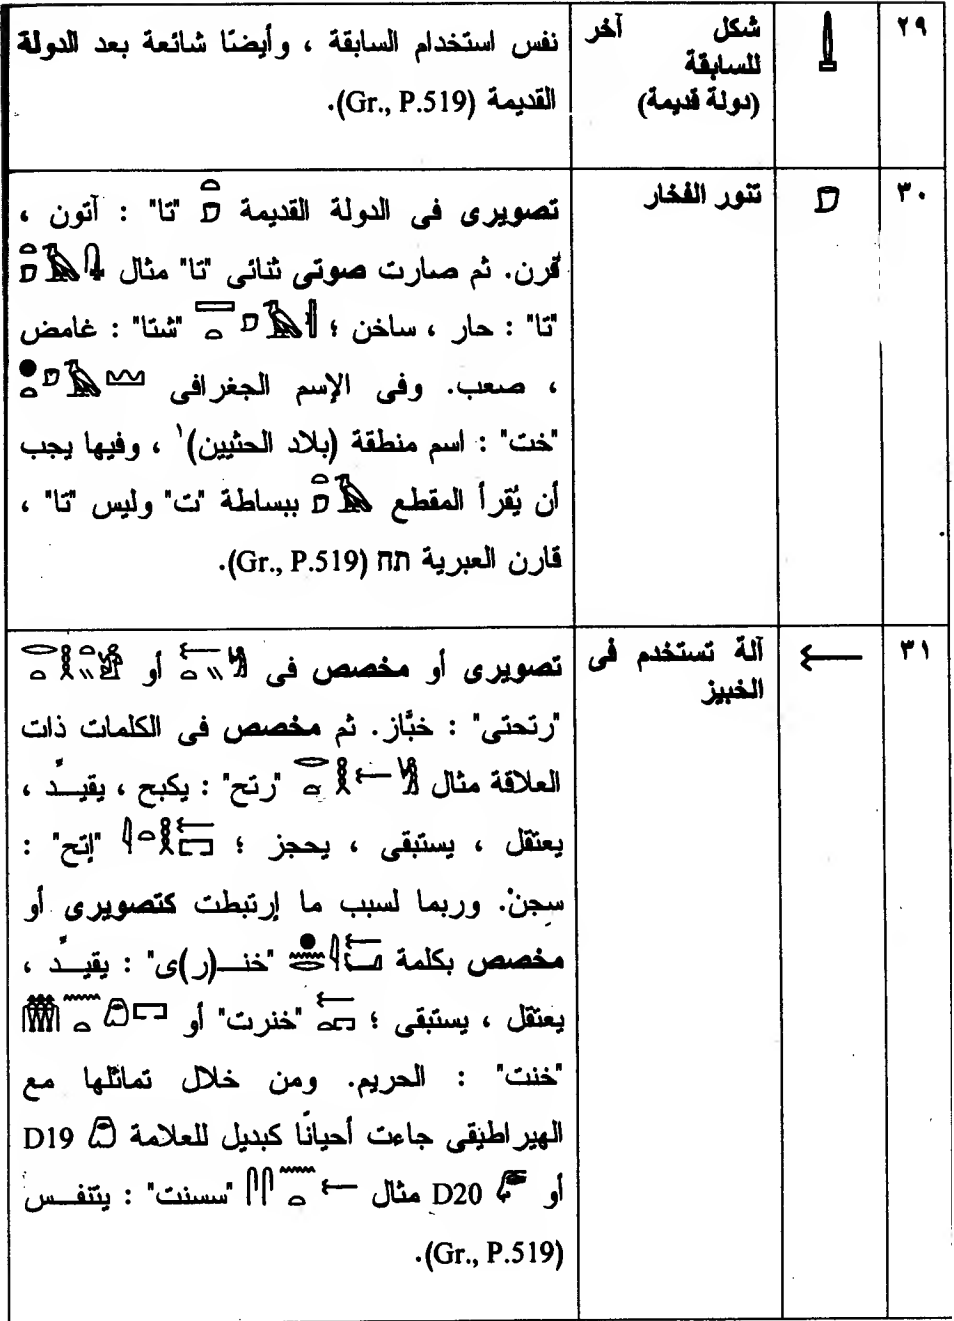 ٢٩ شكل آخر نفس استخدام السابقة ، وأيضنًا شائعة بعد الدولة
للسابقة
(دولة قديمة) القديمة (Gr., P.519).
٣٠ تنور الفخار تصويرى فى الدولة القديمة "تا" : آتون ،
فرن. ثم صارت صوتى ثنائى "تا" مثال
"تا" : حار ، ساخن ؛ "شتا" : غامض
، صعب. وفى الإسم الجغرافى
"خت" : اسم منطقة (بلاد الحثيين)١ ، وفيها يجب
أن يُقرأ المقطع ببساطة "ت" وليس "تا" ،
قارن العبرية חת (Gr., P.519).
٣١ آلة تستخدم فى تصويرى أو مخصص فى أو
الخبيز
"رتحتى" : خبَّاز. ثم مخصص فى الكلمات ذات
العلاقة مثال "رتح" : يكبح ، يقيــدِّ ،
يعتقل ، يستبقى ، يحجز ؛ "إتح" :
سجن. وربما لسبب ما إرتبطت كتصويرى أو
مخصص بكلمة "خنــ(ر)ى" : يقيــدِّ ،
يعتقل ، يستبقى ؛ "خنرت" أو
"خنت" : الحريم. ومن خلال تماثلها مع
الهيراطيقى جاءت أحيانًا كبديل للعلامة D19
أو D20 مثال "سسنت" : يتنفــس
(Gr., P.519).